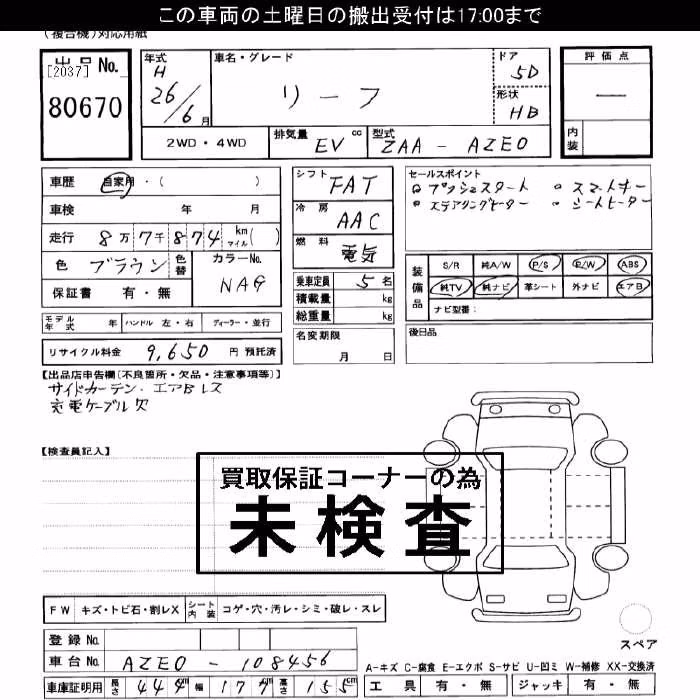 この車両の土曜日の搬出受付は17:00まで
(複合機)対応用紙
出品No. [2037] 80670
年式 H 26/6月
車名・グレード リーフ
ドア 5D
形状 HB
評価点 —
内装
2WD・4WD
排気量 EV cc
型式 ZAA - AZE0
車歴 自家用・( )
車検 年 月
走行 8万7千874 km マイル( )
色 ブラウン 色替 カラーNo. NAG
保証書 有・無
シフト FAT
冷房 AAC
燃料 電気
乗車定員 5名
積載量 kg
総重量 kg
セールスポイント
プッシュスタート スマートキー
ステアリングヒーター シートヒーター
装備品
S/R 純A/W P/S P/W ABS
純TV 純ナビ 革シート 外ナビ エアB
ナビ型番:
モデル年式 年 ハンドル 左・右 ディーラー・並行
リサイクル料金 9,650 円 預託済
名変期限 月 日
後日品
【出品店申告欄(不良箇所・欠品・注意事項等)】
サイドカーテン・エアBレス
充電ケーブル欠
【検査員記入】
買取保証コーナーの為
未検査
FW キズ・トビ石・割レX シート内装 コゲ・穴・汚レ・シミ・破レ・スレ
登録No.
車台No. AZE0 - 108456
車庫証明用 長さ 444cm 幅 177cm 高さ 155cm
スペア
A-キズ C-腐食 E-エクボ S-サビ U-凹ミ W-補修 XX-交換済
工具 有・無 ジャッキ 有・無